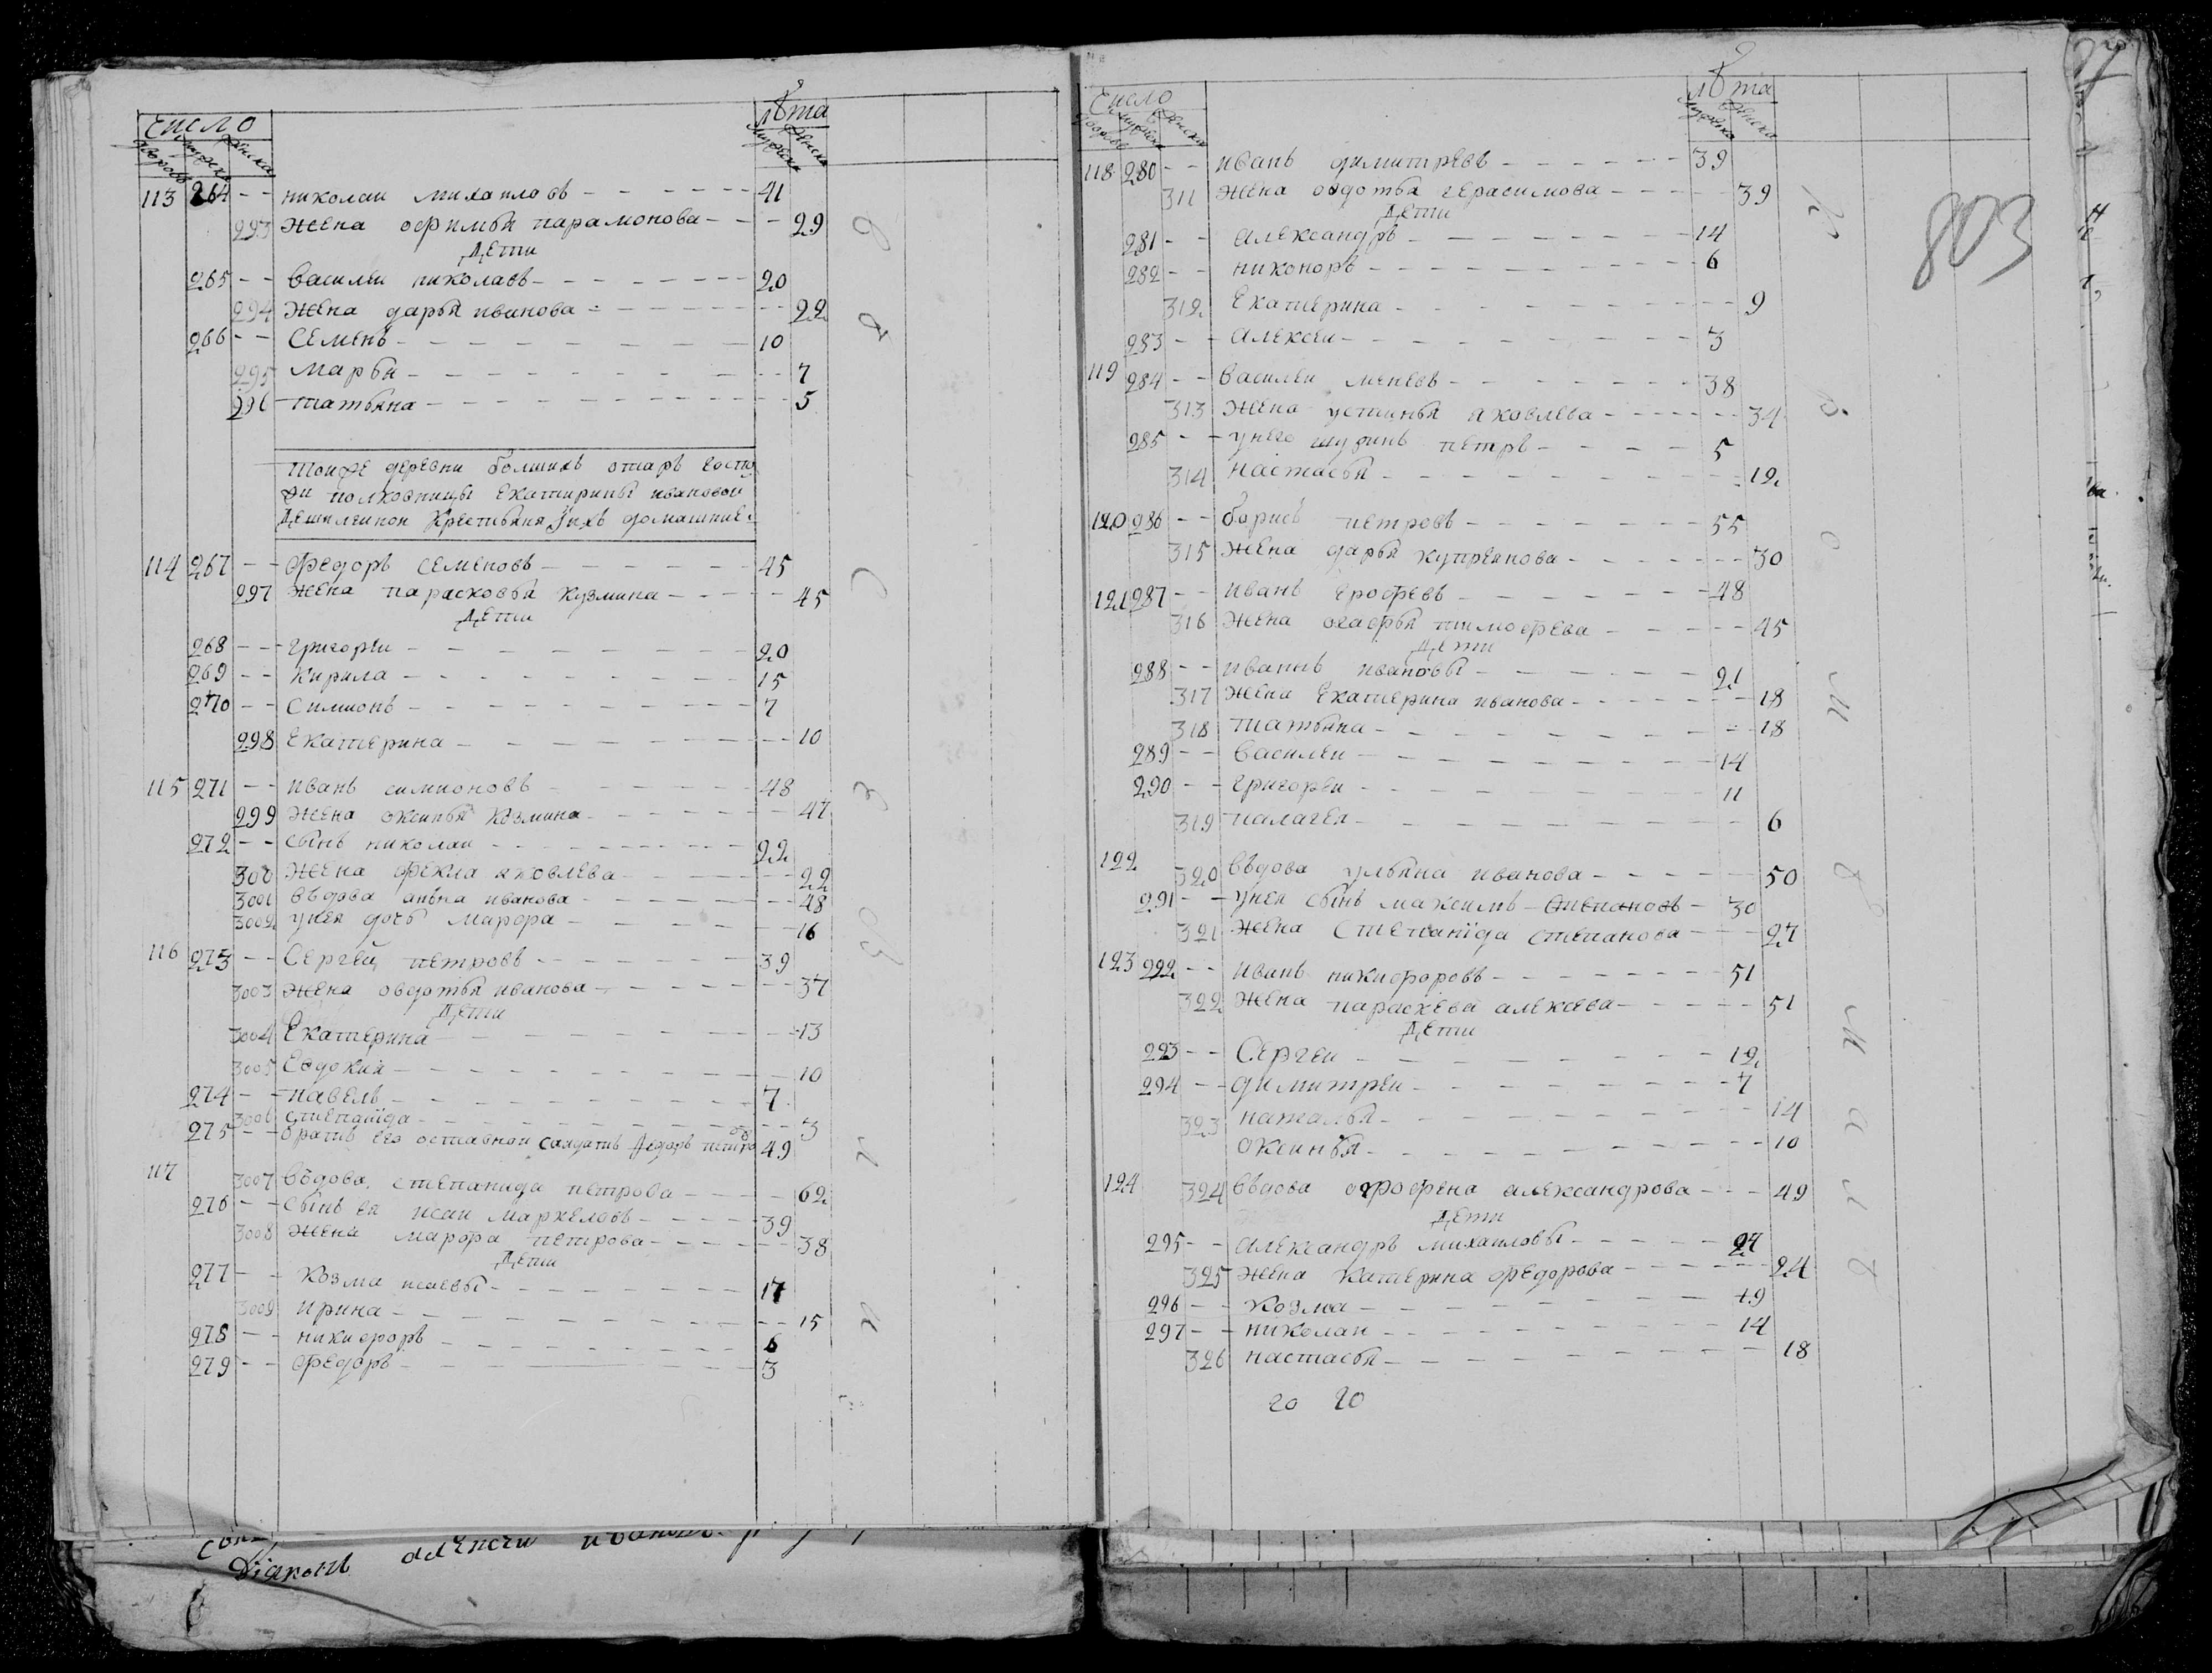 число
лѣта
дворовъ мужска женска
мужска женска
113 264 -- николаи михаиловъ 41
293 жена офимья парамонова 29
дети
265 -- василеи николаевъ 20
294 жена дарья иванова 22
266 -- семенъ 10
295 марья 7
296 татьяна 5
Тоиже деревни болшихъ отаръ госпо
жи полковницы екатирины ивановои
крестьяня унихъ домашние:
114 267 -- федоръ семеновъ 45
297 жена парасковья кузмина 45
дети
268 -- григореи 20
269 -- кирила 15
270 -- симионъ 7
298 екатерина 10
115 271 -- иванъ симионовъ 48
299 жена оксинья козмина 47
272 -- сынъ николаи 22
300 жена фекла яковлева 22
3001 въдова анъна иванова 48
3002 унея дочь марфа 16
116 273 -- Сергей петровъ 39
3003 жена овдотья иванова 37
дети
3004 Екатерина 13
3005 Евдокия 10
274 -- павелъ 7
3006 степанїда 3
275 -- братъ его оставнои салдатъ Федоръ петровъ 49
117 3007 въдова степанида петрова 62
276 -- сынъ ея исаи маркеловъ 39
3008 жена марфа петрова 38
дети
277 -- козма исаевы 17
3009 ирина 15
278 -- никифоръ 6
279 -- федоръ 3
Дїаконъ алексеи
число
лѣта
дворовъ мужска женска
мужска женска
803
118 280 -- иванъ димитревъ 39
311 жена овдотья герасимова 39
дети
281 -- александръ 14
282 -- никоноръ 6
312 екатерина 9
283 -- алексеи 3
119 284 -- василеи 38
313 жена устинья яковлева 34
285 -- унего шуринъ петръ 5
314 настасья 12
120 286 -- борисъ петровъ 55
315 жена дарья купреянова 30
121 287 -- иванъ ерофеевъ 48
316 жена огафья тимофева 45
дети
288 -- иванъ ивановы 21
317 жена екатерина иванова 18
318 татьяна 18
289 -- василеи 14
290 -- григореи 11
319 палагея 6
122 320 въдова ульяна иванова 50
291 -- унея сынъ максимъ степановъ 30
321 жена степанїда степанова 27
123 292 -- иванъ никифоровъ 51
322 жена параскева алексева 51
дети
293 -- Сергеи 12
294 -- димитреи 7
323 наталья 14
оксинья 10
124 324 въдова огрофена александрова 49
дети
295 -- александръ михаиловы 24
325 жена катерина федорова 24
296 -- козма 19
297 -- николаи 14
326 настасья 18
20 20